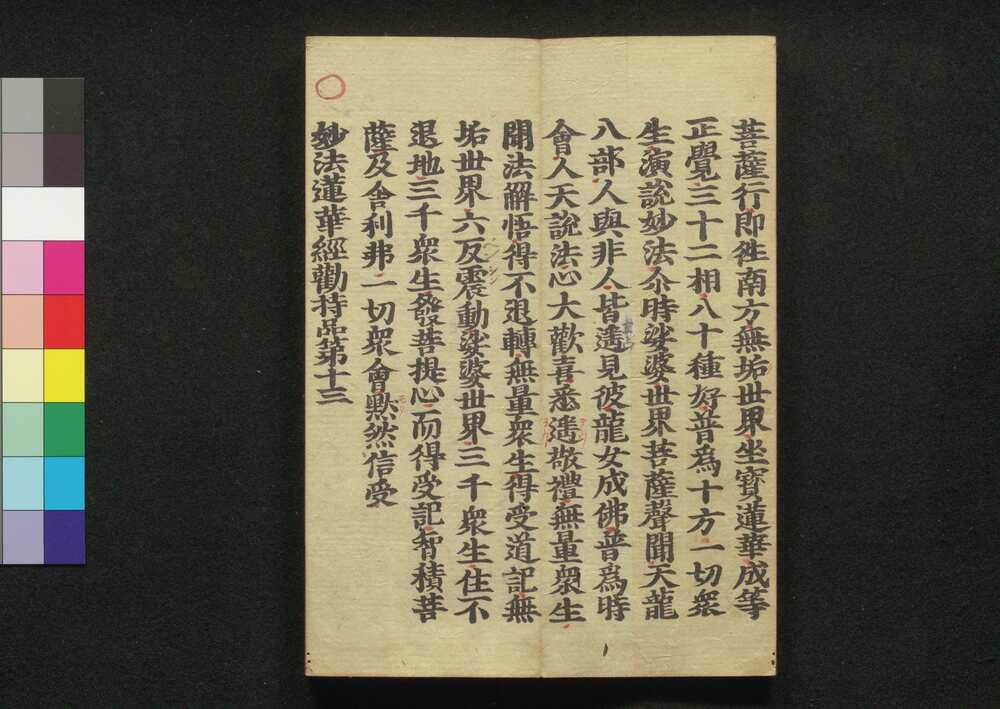 菩薩行即徃南方無垢世界坐寳蓮華成等
正覺三十二相八十種好普為十方一切衆
生演說妙法尒時娑婆世界菩薩聲聞天龍
八部人與非人皆遥見彼龍女成佛普為時
會人天說法心大歡喜悉遥敬禮無量衆生
聞法解悟得不退轉無量衆生得受道記無
垢世界六反震動娑婆世界三千衆生住不
退地三千衆生發菩提心而得受記智積菩
薩及舎利弗一切衆會黙然信受
妙法蓮華經勸持品第十三